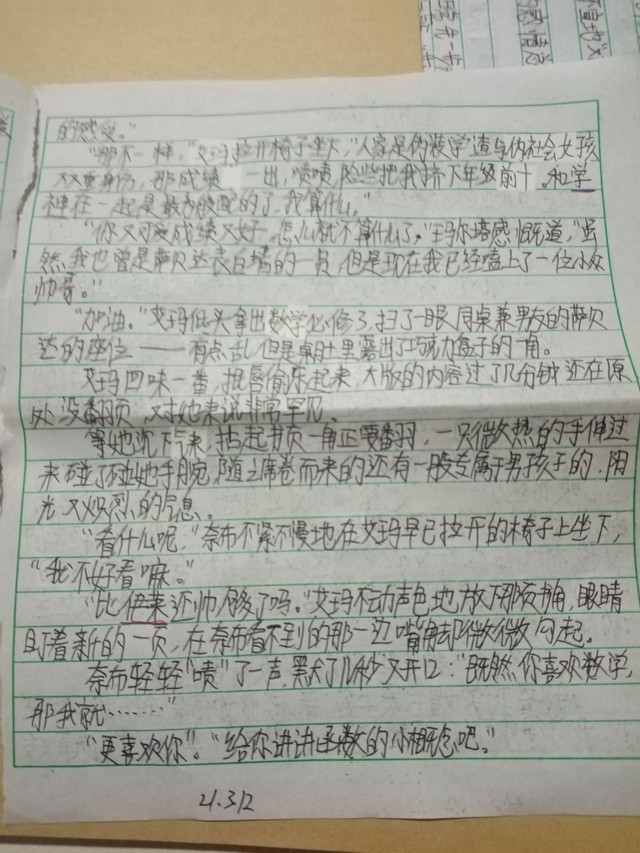 的感受。”
“那不一样,”艾玛拉开椅子坐下,“人家是伪装学渣与伪社会女孩
双重身份,那成绩一出,啧啧,险些把我挤下年级前十。和学
神在一起是最为般配的了,我算什么。”
“你又可爱成绩又好,怎么就不算什么了。”玛尔塔感慨道,“虽
然我也曾是萨贝达表白墙的一员,但是现在我已经嗑上了一位小众
帅哥。”
“加油。”艾玛低头拿出数学必修3,扫了一眼同桌兼男友的萨贝
达的座位——有点乱,但是桌肚里露出了巧克力盒子的一角。
艾玛回味一番,抿唇偷乐起来,大版的内容过了几分钟还在原
处没翻页,对她来说非常罕见。
等她沉下来,拈起书页一角正要翻,一只微热的手伸过
来碰了碰她手腕,随之席卷而来的还有一股专属于男孩子的,阳
光又炽烈的气息。
“看什么呢,”奈布不紧不慢地在艾玛早已拉开的椅子上坐下,
“我不好看嘛。”
“比伊莱还帅够了吗。”艾玛不动声色地放下那页书角,眼睛
盯着新的一页,在奈布看不到的那一边嘴角却微微勾起。
奈布轻轻“啧”了一声,默了几秒又开口:“既然你喜欢数学,
那我就……”
“更喜欢你”。“给你讲讲函数的小概念吧。”
21.3.12